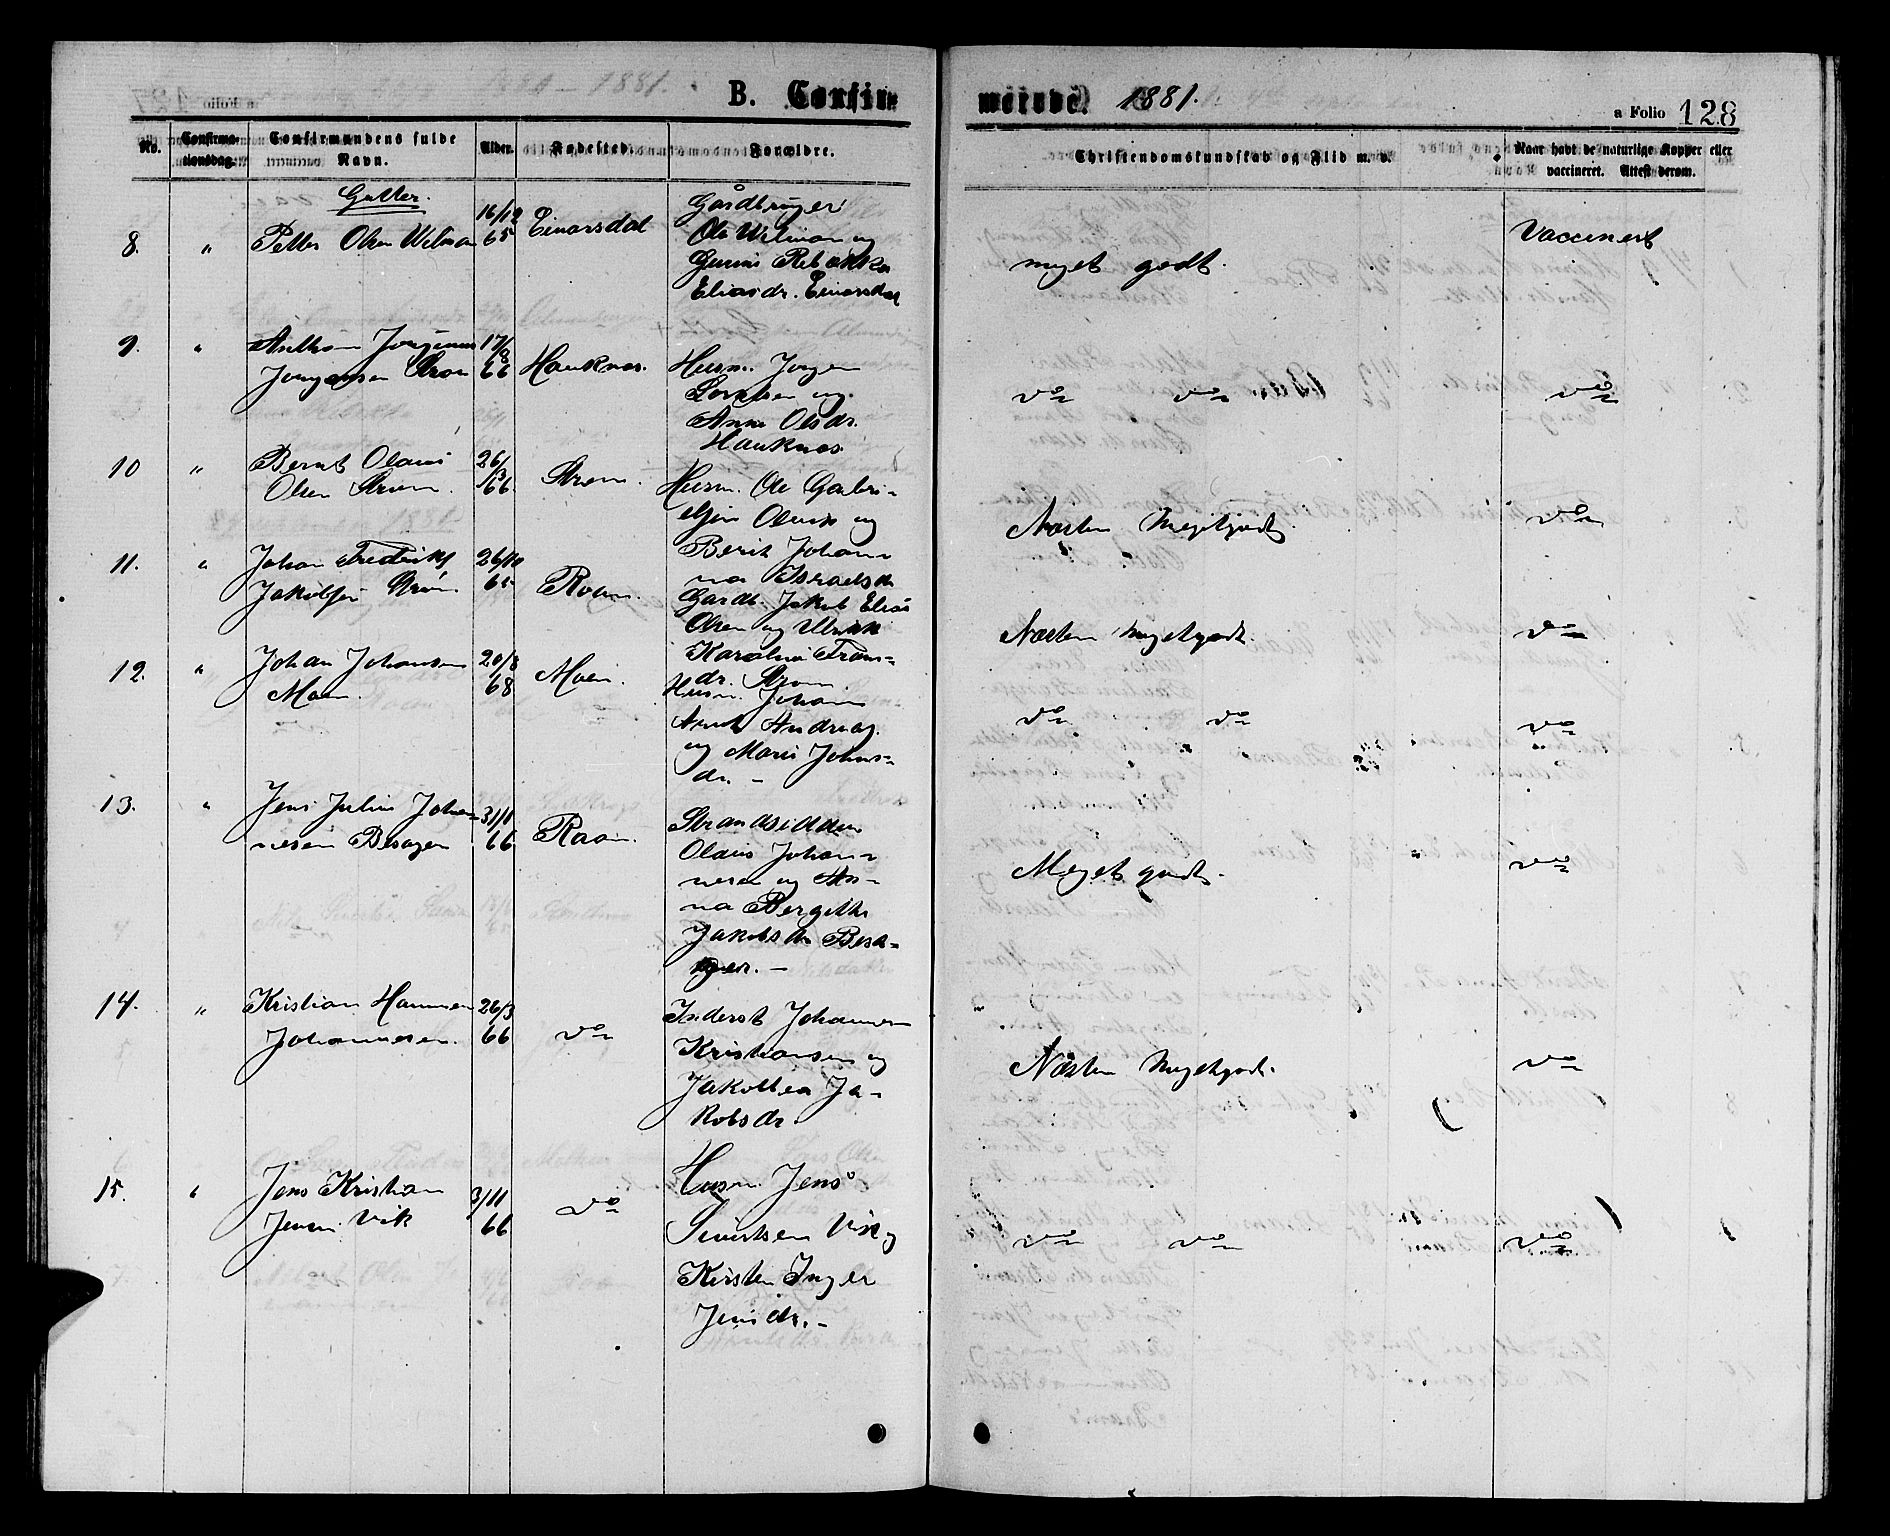 B. Confir-
merede. 1881.
a Folio 128
No.
Confirma-
tionsdag.
Confirmandens fulde
Navn.
Alder.
Fødested.
Forældre.
Christendomskundskab og Flid m. v.
Naar havt de naturlige Kopper eller
vaccineret. Attest derom.
Gutter.
8. " Petter Olsen 16/12 65 Einarsdal Gårdbruger
Ole og
Eliasdr. Einarsdal
meget godt. Vaccinert
9. " Jørgensen Strøm 17/8 66 Hauknes. Husm. Jørgen
og
Anne Olsdr.
Hauknes
do do do
10 " Bernt Olaus
Olsen Strøm. 26/3 66 Strøm. Husm. Ole Gabri-
elsen og
Berit Johan-
na Israelsdr
Næsten Megetgodt. do
11. " Johan Fredrik
Jakobsen Strøm 26/10 65 Raan. Gardb. Jakob Elias
Olsen og Ulrikk
Karoline Frans-
dr. Strøm.
Næsten Megetgodt. do
12. " Johan Johansen
Moen. 20/8 68 Moen. Husm. Johan
Arnt Andreas.
og Maria Johns-
dr. -
do do do
13. " Jens Julius Johan-
nesen Besager 31/1 66 Raan. Strandsidder
Olaus Johan-
nesen og An-
na Bergitte
Jakobsdr Besa-
ger. -
Meget godt. do
14. " Kristian
Johannesen. 26/3 66 do Inderst Johannes
Kristiansen og
Jakobea Ja-
kobsdr.
Næsten Megetgodt. do
15. " Jens Kristian
Jensen Vik 3/11 66 do Husm. Jens
Sivertsen Vik og
Kirsten Inger
Jensdr. -
do do do